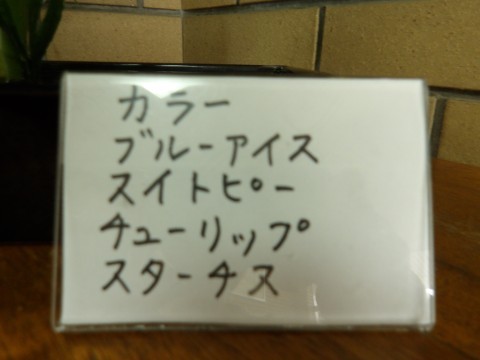 カラー
ブルーアイス
スイトピー
チューリップ
スターチス